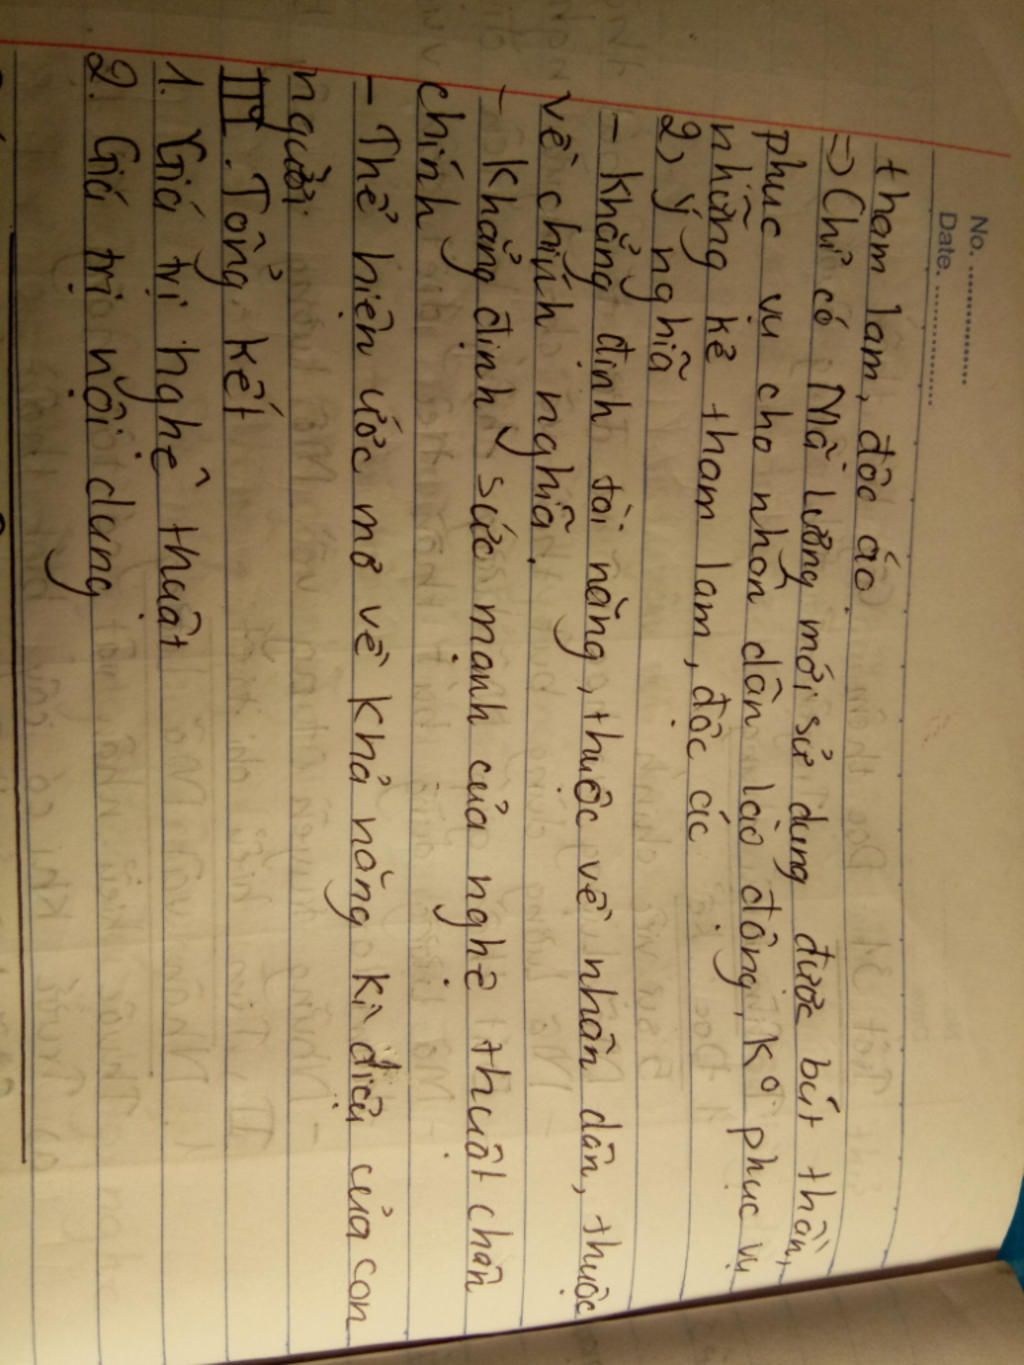 No. ....................
Date. ....................
tham lam, độc ác
=> Chỉ có Mã Lương mới sử dụng được bút thần,
phục vụ cho nhân dân lao động, K° phục vụ
những kẻ tham lam, độc ác
2, ý nghĩa
- Khẳng định tài năng, thuộc về nhân dân, thuộc
về chính nghĩa.
- Khẳng định sức mạnh của nghệ thuật chân
chính
- Thể hiện ước mơ về khả năng kì diệu của con
người
III. Tổng kết
1. Giá trị nghệ thuật
2. Giá trị nội dung